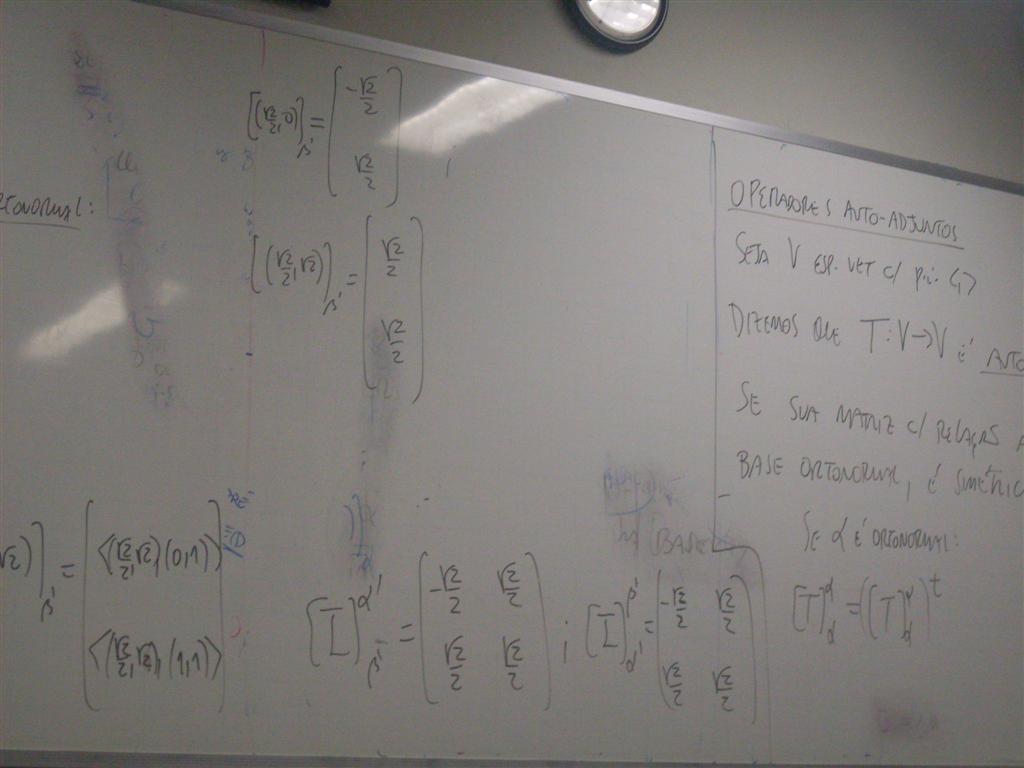 [(√2/2, 0)]β' = (-√2/2
√2/2)
[(√2/2, √2)]β' = (√2/2
√2/2)
√2)]β' = (<(√2/2, √2), (0,1)>
<(√2/2, √2), (1,1)>)
[I]α'β' = (-√2/2 √2/2
√2/2 √2/2) ; [I]β'α' = (-√2/2 √2/2
√2/2 √2/2)
BASE
OPERADORES AUTO-ADJUNTOS
SEJA V ESP. VET C/ p.i. <,>
DIZEMOS QUE T: V→V É AUTO
SE SUA MATRIZ C/ RELAÇÃO A
BASE ORTONORMAL, É SIMÉTRIC
SE α É ORTONORMAL:
[T]αα = ([T]αα)t